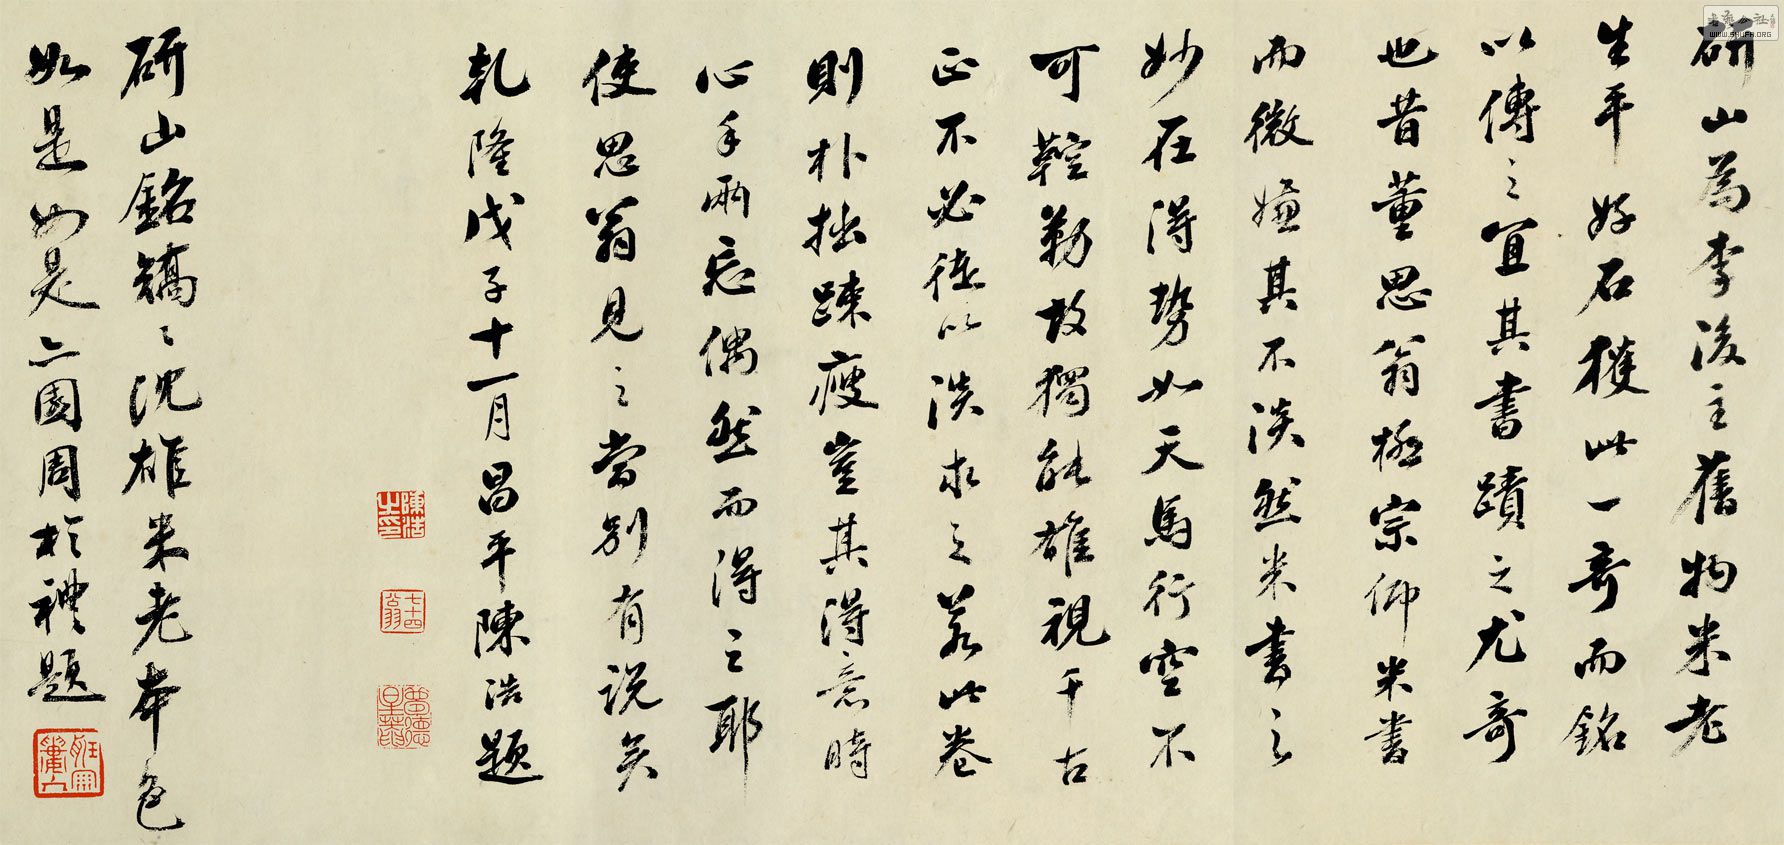 研山為李後主舊物米老
生平好石獲此一奇而銘
以傳之宜其書蹟之尤奇
也昔董思翁極宗仰米書
而微嫌其不淡然米書之
妙在得勢如天馬行空不
可鞚勒故獨能雄視千古
正不必徒以淡求之若此卷
則朴拙疎瘦豈其得意時
心手兩忘偶然而得之耶
使思翁見之當別有說矣
乾隆戊子十一月昌平陳浩題
陳浩之印
七十四翁
研山銘矯々沈雄米老本色
如是如是六園周於禮題
WWW.SHUFA.ORG